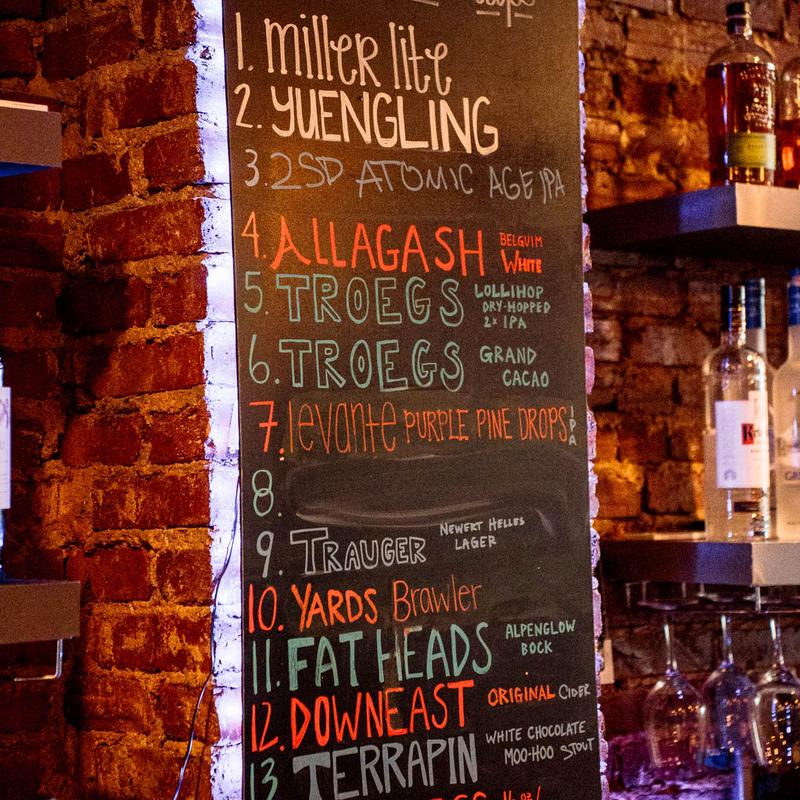 1. miller lite
2. YUENGLING
3. 2SD ATOMIC AGE IPA
4. ALLAGASH BELGUIM WHITE
5. TROEGS LOLLIHOP DRY-HOPPED 2x IPA
6. TROEGS GRAND CACAO
7. levante PURPLE PINE DROPS IPA
8.
9. TRAUGER NEWERT HELLES LAGER
10. YARDS Brawler
11. FAT HEADS ALPENGLOW BOCK
12. DOWNEAST ORIGINAL CIDER
13 TERRAPIN WHITE CHOCOLATE MOO-HOO STOUT